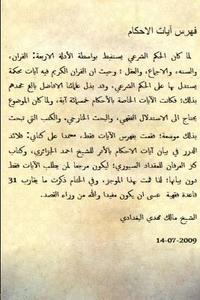 فهرس آيات الاحكام
لما كان الحكم الشرعي يستنبط بواسطة الأدلة الاربعة: القرآن،
والسنة، والاجماع، والعقل؛ وحيث ان القرآن الكريم فيه آيات محكمة
يستدل بها على الحكم الشرعي، وقد بذل علمائنا الافاضل بالغ جهدهم
بذلك؛ فكانت الآيات الخاصة بالأحكام خمسمائة آية، ولما كان الموضوع
يحتاج الى الاستدلال الفقهي، والبحث الخارجي. والكتب التي تبحث
بذلك موسعة؛ قمت بفهرس الآيات فقط، معتمدا على كتابي: قلائد
الدرر في بيان آيات الاحكام بالأثر للشيخ احمد الجزائري، وكتاب
كنز العرفان للمقداد السيوري؛ ليكون مرجعا لمن يطلب الآيات فقط
دون بيانها؛ لذا قمت بهذا الموجز. وفي الختام ذكرت ما يقارب 31
قاعدة فقهية عسى ان يكون مفيدا والله من وراء القصد.
الشيخ مالك مجدي البغدادي
14-07-2009